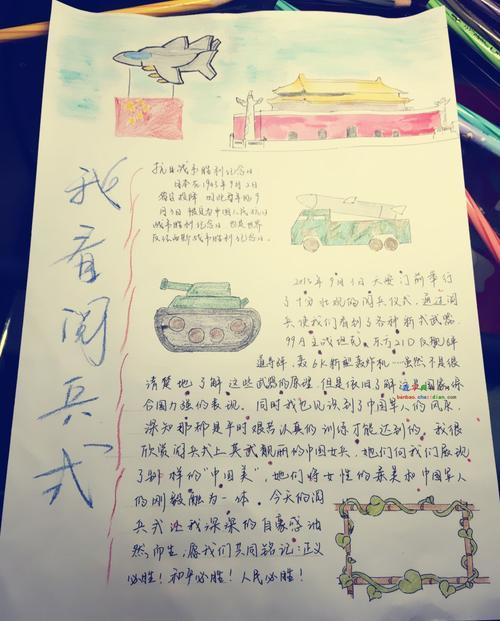 我看阅兵式
抗日战争胜利纪念日
日本在1945年9月2日
签署投降 因此每年的9
月3日被定为中国人民抗日
战争胜利纪念日，也是世界
反法西斯战争胜利纪念日。
2015年9月3日天安门前举行
了十分壮观的阅兵仪式，通过阅
兵使我们看到了各种新式武器，
99A主战坦克、东方21D反舰弹
道导弹、轰6K新型轰炸机……虽然不是很
清楚地了解这些武器的原理，但是依旧了解这是国家综
合国力强的表现。同时我也见识到了中国军人的风采，
深知那都是平时艰苦认真的训练才能达到的。我很
欣赏阅兵式上英武靓丽的中国女兵，她们向我们展现
了别样的“中国美”，她们将女性的柔美和中国军人
的刚毅融为一体。今天的阅
兵式让我深深的自豪感油
然而生，愿我们共同铭记：正义
必胜！和平必胜！人民必胜！
banbao.chazidian.com